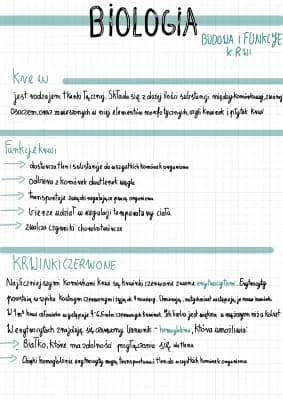 BIOLOGIA
BUDOWA I FUNKCJE
KRWI
Krew
jest rodzajem tkanki łącznej. Składa się z dużej ilości substancji międzykomórkowej, zwanej
osoczem, oraz zawieszonych w niej elementów morfotycznych, czyli krwinek i płytek krwi
Funkcje krwi
dostarcza tlen i substancje do wszystkich komórek organizmu
odbiera z komórek dwutlenek węgla
transportuje związki regulujące pracę organizmu
bierze udział w regulacji temperatury ciała
zwalcza czynniki chorobotwórcze
KRWINKI CZERWONE
Najliczniejszymi komórkami krwi są krwinki czerwone zwane erytrocytami. Erytrocyty
powstają w szpiku kostnym czerwonym i żyją ok. 4 miesięcy.
W 1 mm³ krwi człowieka występuje 4-6 mln czerwonych krwinek. Ich liczba jest większa u mężczyzn niż u kobiet
W erytrocytach znajduje się czerwony barwnik - hemoglobina, która umożliwia:
Białko, które ma zdolność połączenia się z tlenem
Dzięki hemoglobinie erytrocyty mogą transportować tlen do wszystkich komórek organizmu